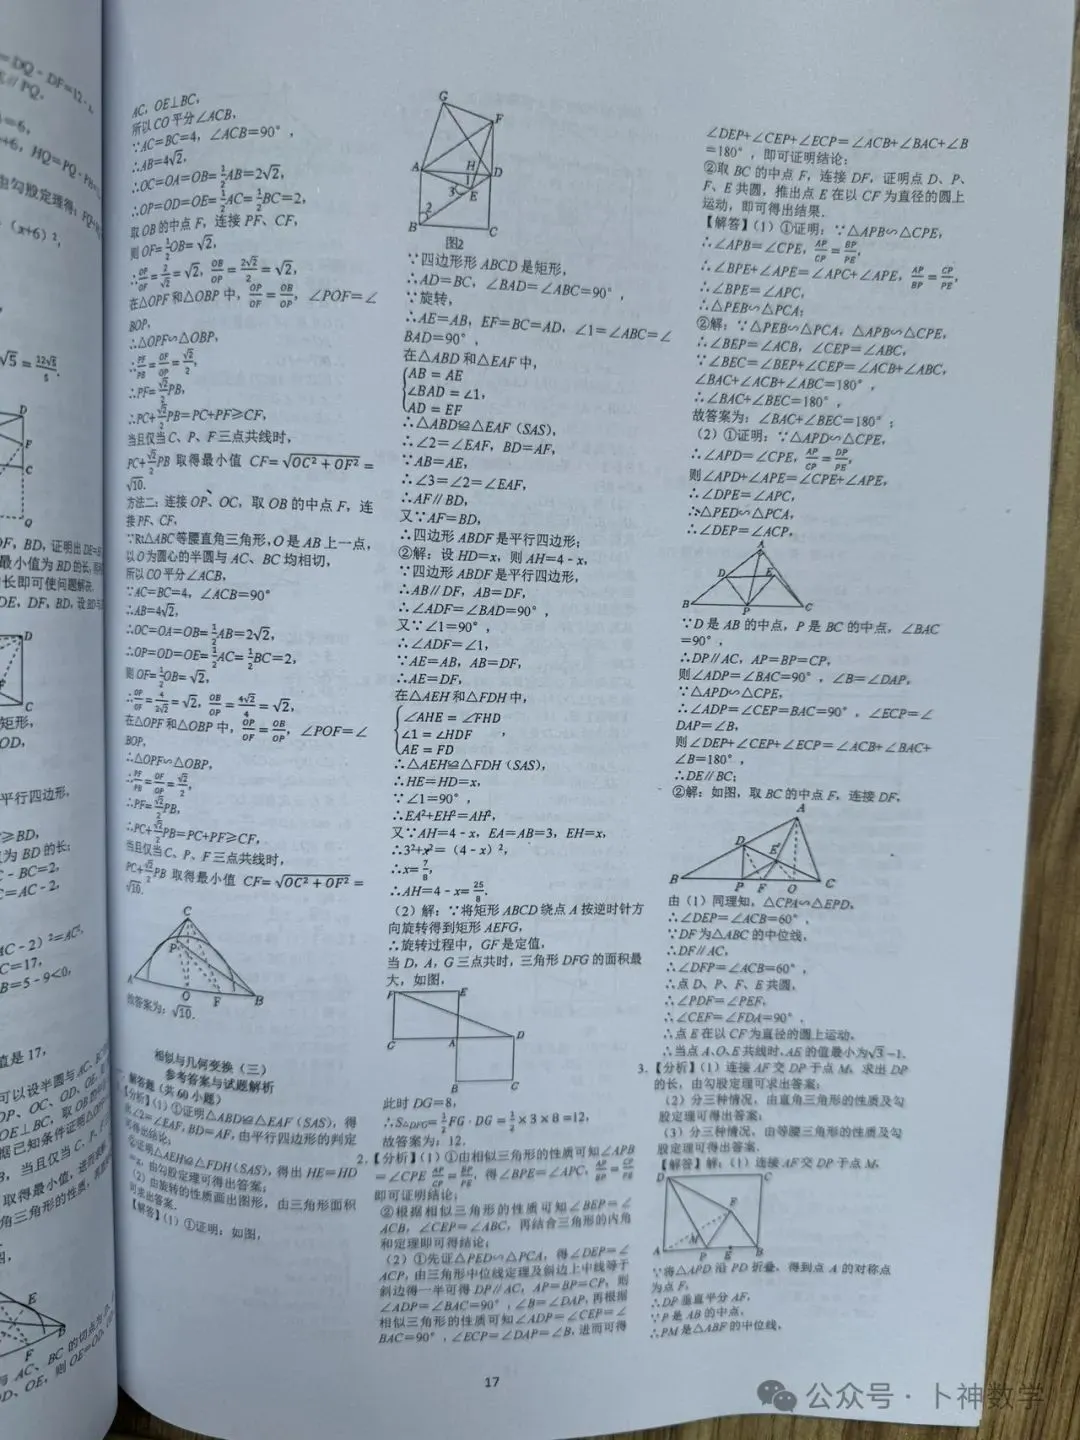 AC, OE⊥BC,
所以 CO 平分∠ACB,
∵AC=BC=4, ∠ACB=90°,
∴AB=4√2,
∴OC=OA=OB=1/2AB=2√2,
∴OP=OD=OE=1/2AC=1/2BC=2,
取 OB 的中点 F, 连接 PF、CF,
则 OF=1/2OB=√2,
∴OP/OF=2/√2=√2, OB/OP=2√2/2=√2,
在△OPF 和△OBP 中, OP/OF=OB/OP, ∠POF=∠
BOP,
∴△OPF∽△OBP,
∴PF/PB=OF/OP=√2/2,
∴PF=√2/2PB,
∴PC+√2/2PB=PC+PF≥CF,
当且仅当 C、P、F 三点共线时,
PC+√2/2PB 取得最小值 CF=√(OC²+OF²)=
√10.
方法二: 连接 OP、OC, 取 OB 的中点 F, 连
接 PF、CF,
∵Rt△ABC 等腰直角三角形, O 是 AB 上一点,
以 O 为圆心的半圆与 AC、BC 均相切,
所以 CO 平分∠ACB,
∵AC=BC=4, ∠ACB=90°
∴AB=4√2,
∴OC=OA=OB=1/2AB=2√2,
∴OP=OD=OE=1/2AC=1/2BC=2,
则 OF=1/2OB=√2,
∴OP/OF=4/2√2=√2, OB/OP=4√2/4=√2,
在△OPF 和△OBP 中, OP/OF=OB/OP, ∠POF=∠
BOP,
∴△OPF∽△OBP,
∴PF/PB=OF/OP=√2/2,
∴PF=√2/2PB,
∴PC+√2/2PB=PC+PF≥CF,
当且仅当 C、P、F 三点共线时,
PC+√2/2PB 取得最小值 CF=√(OC²+OF²)=
√10.
C
P
A
O
F
B
故答案为: √10.
相似与几何变换（三）
参考答案与试题解析
一. 解答题（共 60 小题）
【分析】（1）①证明△ABD≌△EAF（SAS）, 得
∠2=∠EAF, BD=AF, 由平行四边形的判定
可得出结论;
②证明△AEH≌△FDH（SAS）, 得出 HE=HD
=x, 由勾股定理可得出答案;
（2）由旋转的性质画出图形, 由三角形面积
可求出答案.
【解答】（1）①证明: 如图,
G
F
A
H
D
1
3
E
2
B
C
图2
∵四边形形 ABCD 是矩形,
∴AD=BC, ∠BAD=∠ABC=90°,
∵旋转,
∴AE=AB, EF=BC=AD, ∠1=∠ABC=∠
BAD=90°,
在△ABD 和△EAF 中,
AB = AE
∠BAD = ∠1,
AD = EF
∴△ABD≌△EAF（SAS）,
∴∠2=∠EAF, BD=AF,
∵AB=AE,
∴∠3=∠2=∠EAF,
∴AF∥BD,
又∵AF=BD,
∴四边形 ABDF 是平行四边形;
②解: 设 HD=x, 则 AH=4﹣x,
∵四边形 ABDF 是平行四边形,
∴AB∥DF, AB=DF,
∴∠ADF=∠BAD=90°,
又∵∠1=90°,
∴∠ADF=∠1,
∵AE=AB, AB=DF,
∴AE=DF,
在△AEH 和△FDH 中,
∠AHE = ∠FHD
∠1 = ∠HDF ,
AE = FD
∴△AEH≌△FDH（SAS）,
∴HE=HD=x,
∵∠1=90°,
∴EA²+EH²=AH²,
又∵AH=4﹣x, EA=AB=3, EH=x,
∴3²+x²=（4﹣x）²,
∴x=7/8,
∴AH=4﹣x=25/8.
（2）解: ∵将矩形 ABCD 绕点 A 按逆时针方
向旋转得到矩形 AEFG,
∴旋转过程中, GF 是定值,
当 D, A, G 三点共时, 三角形 DFG 的面积最
大, 如图,
F
E
D
G
A
B
C
此时 DG=8,
∴S△DFG=1/2FG·DG=1/2×3×8=12,
故答案为: 12.
2.【分析】（1）①由相似三角形的性质可知∠APB
=∠CPE AP/CP=BP/PE, 得∠BPE=∠APC, AP/BP=CP/PE
即可证明结论;
②根据相似三角形的性质可知∠BEP=∠
ACB, ∠CEP=∠ABC, 再结合三角形的内角
和定理即可得结论;
（2）①先证△PED∽△PCA, 得∠DEP=∠
ACP, 由三角形中位线定理及斜边上中线等于
斜边得一半可得 DP∥AC, AP=BP=CP, 则
∠ADP=∠BAC=90°, ∠B=∠DAP, 再根据
相似三角形的性质可知∠ADP=∠CEP=∠
BAC=90°, ∠ECP=∠DAP=∠B, 进而可得
∠DEP+∠CEP+∠ECP=∠ACB+∠BAC+∠B
=180°, 即可证明结论;
②取 BC 的中点 F, 连接 DF, 证明点 D、P、
F、E 共圆, 推出点 E 在以 CF 为直径的圆上
运动, 即可得出结果.
【解答】（1）①证明: ∵△APB∽△CPE,
∴∠APB=∠CPE, AP/CP=BP/PE,
∴∠BPE+∠APE=∠APC+∠APE, AP/BP=CP/PE,
∴∠BPE=∠APC,
∴△PEB∽△PCA;
②解: ∵△PEB∽△PCA, △APB∽△CPE,
∴∠BEP=∠ACB, ∠CEP=∠ABC,
∵∠BEC=∠BEP+∠CEP=∠ACB+∠ABC,
∠BAC+∠ACB+∠ABC=180°,
∴∠BAC+∠BEC=180°,
故答案为: ∠BAC+∠BEC=180°;
（2）①证明: ∵△APD∽△CPE,
∴∠APD=∠CPE, AP/CP=DP/PE,
则∠APD+∠APE=∠CPE+∠APE,
∴∠DPE=∠APC,
∴△PED∽△PCA,
∴∠DEP=∠ACP,
A
D
E
B
P
C
∵D 是 AB 的中点, P 是 BC 的中点, ∠BAC
=90°,
∴DP∥AC, AP=BP=CP,
则∠ADP=∠BAC=90°, ∠B=∠DAP,
∵△APD∽△CPE,
∴∠ADP=∠CEP=BAC=90°, ∠ECP=∠
DAP=∠B,
则∠DEP+∠CEP+∠ECP=∠ACB+∠BAC+
∠B=180°,
∴DE∥BC;
②解: 如图, 取 BC 的中点 F, 连接 DF,
A
D
E
B
P
F
O
C
由（1）同理知, △CPA∽△EPD,
∴∠DEP=∠ACB=60°,
∵DF 为△ABC 的中位线,
∴DF∥AC,
∴∠DFP=∠ACB=60°,
∴点 D、P、F、E 共圆,
∴∠PDF=∠PEF,
∴∠CEF=∠FDA=90°,
∴点 E 在以 CF 为直径的圆上运动,
∴当点 A、O、E 共线时, AE 的值最小为√3﹣1.
3.【分析】（1）连接 AF 交 DP 于点 M, 求出 DP
的长, 由勾股定理可求出答案;
（2）分三种情况, 由直角三角形的性质及勾
股定理可得出答案;
（3）分三种情况, 由等腰三角形的性质及勾
股定理可得出答案.
【解答】解: （1）连接 AF 交 DP 于点 M,
D
C
F
M
A
P
E
B
∵将△APD 沿 PD 折叠, 得到点 A 的对称点
为点 F,
∴DP 垂直平分 AF,
∵P 是 AB 的中点,
∴PM 是△ABF 的中位线,
17
公众号·卜神数学